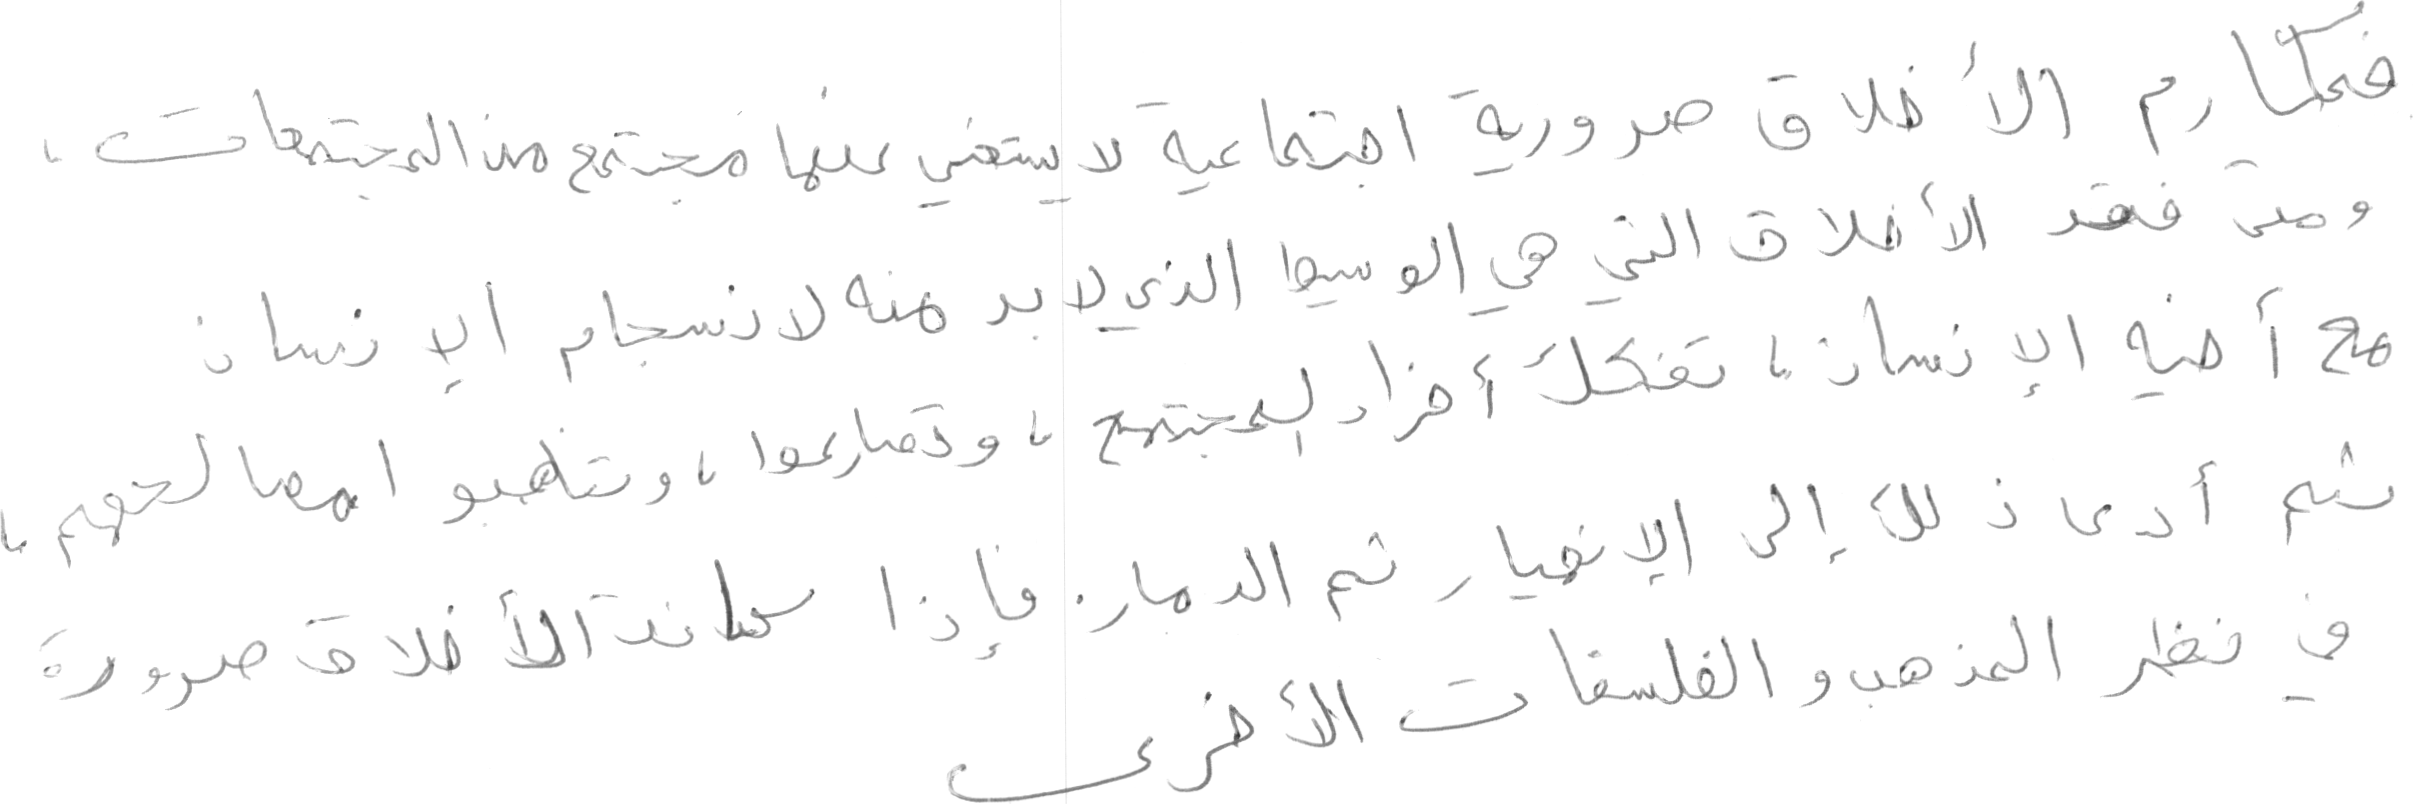 فمكارم الأخلاق ضرورية اجتماعية لا يستغني عنها مجتمع من المجتمعات،
ومتى فقد الأخلاق التي هي الوسيط الذي لا بد منه لانسجام الإنسان
مع أخيه الإنسان، تفكك أفراد المجتمع، وتصارعوا، وتناهبوا مصالحهم،
ثم أدى ذلك إلى الإنهيار ثم الدمار. فإذا كانت الأخلاق ضرورة
في نظر المذهب والفلسفات الأخرى